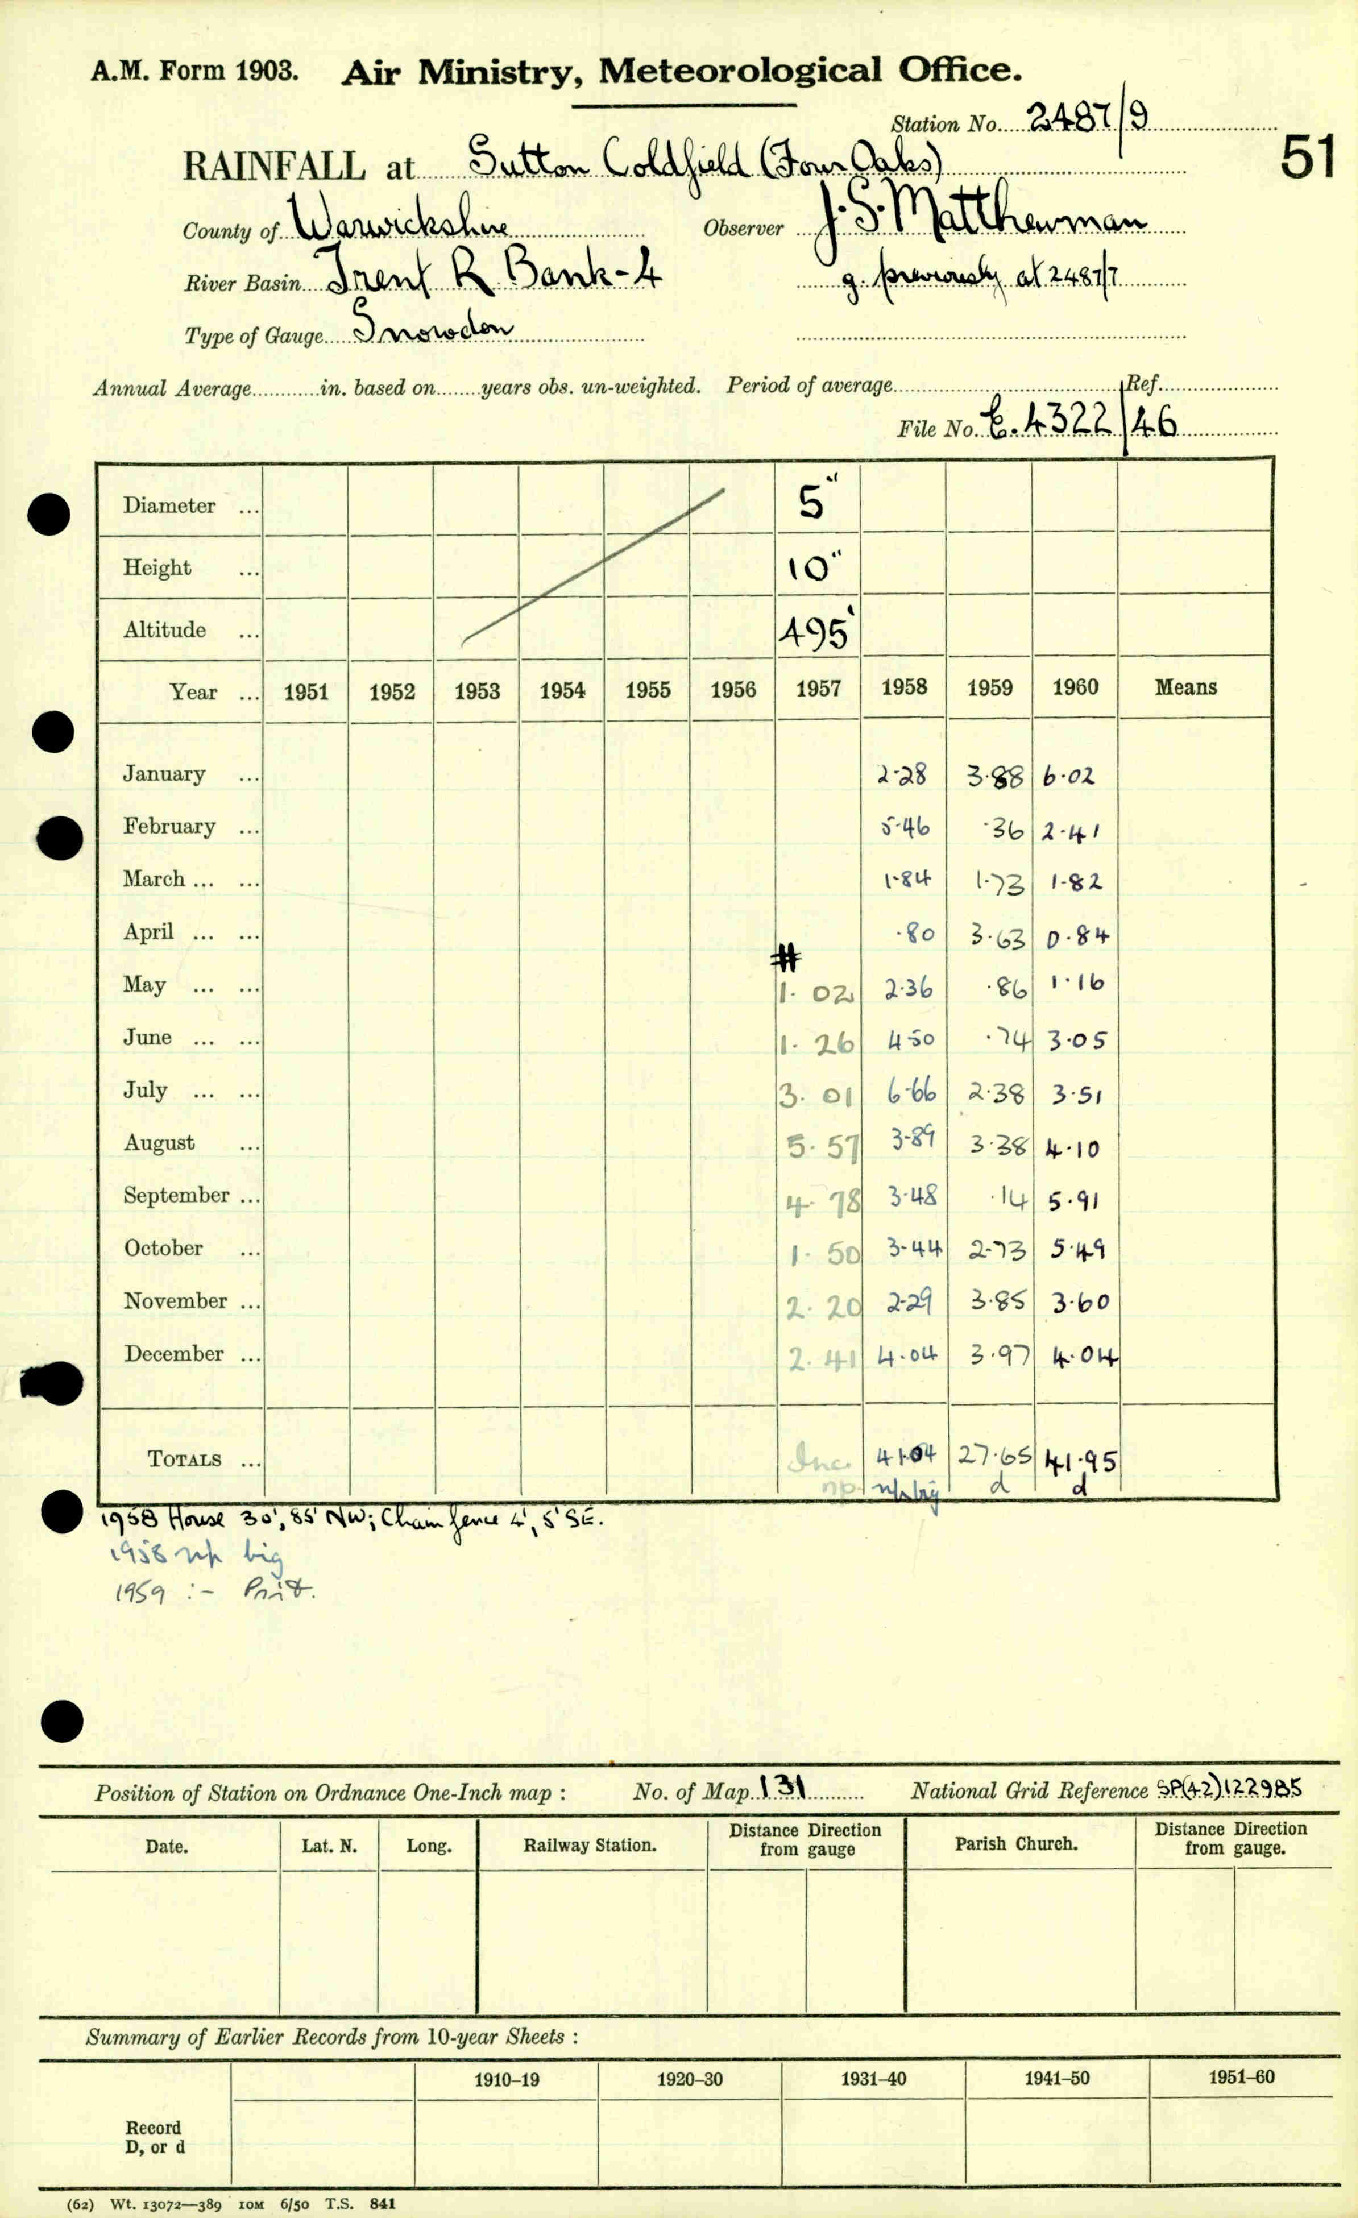 A.M. Form 1903. Air Ministry, Meteorological Office.
Station No. 2487/9
51
RAINFALL at Sutton Coldfield (Four Oaks)
County of Warwickshire Observer J.S. Matthewman
River Basin Trent R Bank-4 g. previously at 2487/7
Type of Gauge Snowdon
Annual Average in. based on years obs. un-weighted. Period of average Ref.
File No. E.4322/46
Diameter ... 5"
Height ... 10"
Altitude ... 495'
Year ... 1951 1952 1953 1954 1955 1956 1957 1958 1959 1960 Means
January ... 2.28 3.88 6.02
February ... 5.46 .36 2.41
March ... ... 1.84 1.73 1.82
April ... ... .80 3.63 0.84
#
May ... ... 1.02 2.36 .86 1.16
June ... ... 1.26 4.50 .74 3.05
July ... ... 3.01 6.66 2.38 3.51
August ... 5.57 3.89 3.38 4.10
September ... 4.78 3.48 .14 5.91
October ... 1.50 3.44 2.73 5.49
November ... 2.20 2.29 3.85 3.60
December ... 2.41 4.04 3.97 4.04
TOTALS ... Inc. 41.04 27.65 41.95
np. np big d d
1958 House 30', 85' NW; Chain fence 4', 5' SE.
1958 np big
1959 :- Print.
Position of Station on Ordnance One-Inch map : No. of Map 131 National Grid Reference SP(42)122985
Date. Lat. N. Long. Railway Station. Distance from Direction gauge Parish Church. Distance from Direction gauge.
Summary of Earlier Records from 10-year Sheets :
1910–19 1920–30 1931–40 1941–50 1951–60
Record
D, or d
(62) Wt. 13072—389 10M 6/50 T.S. 841